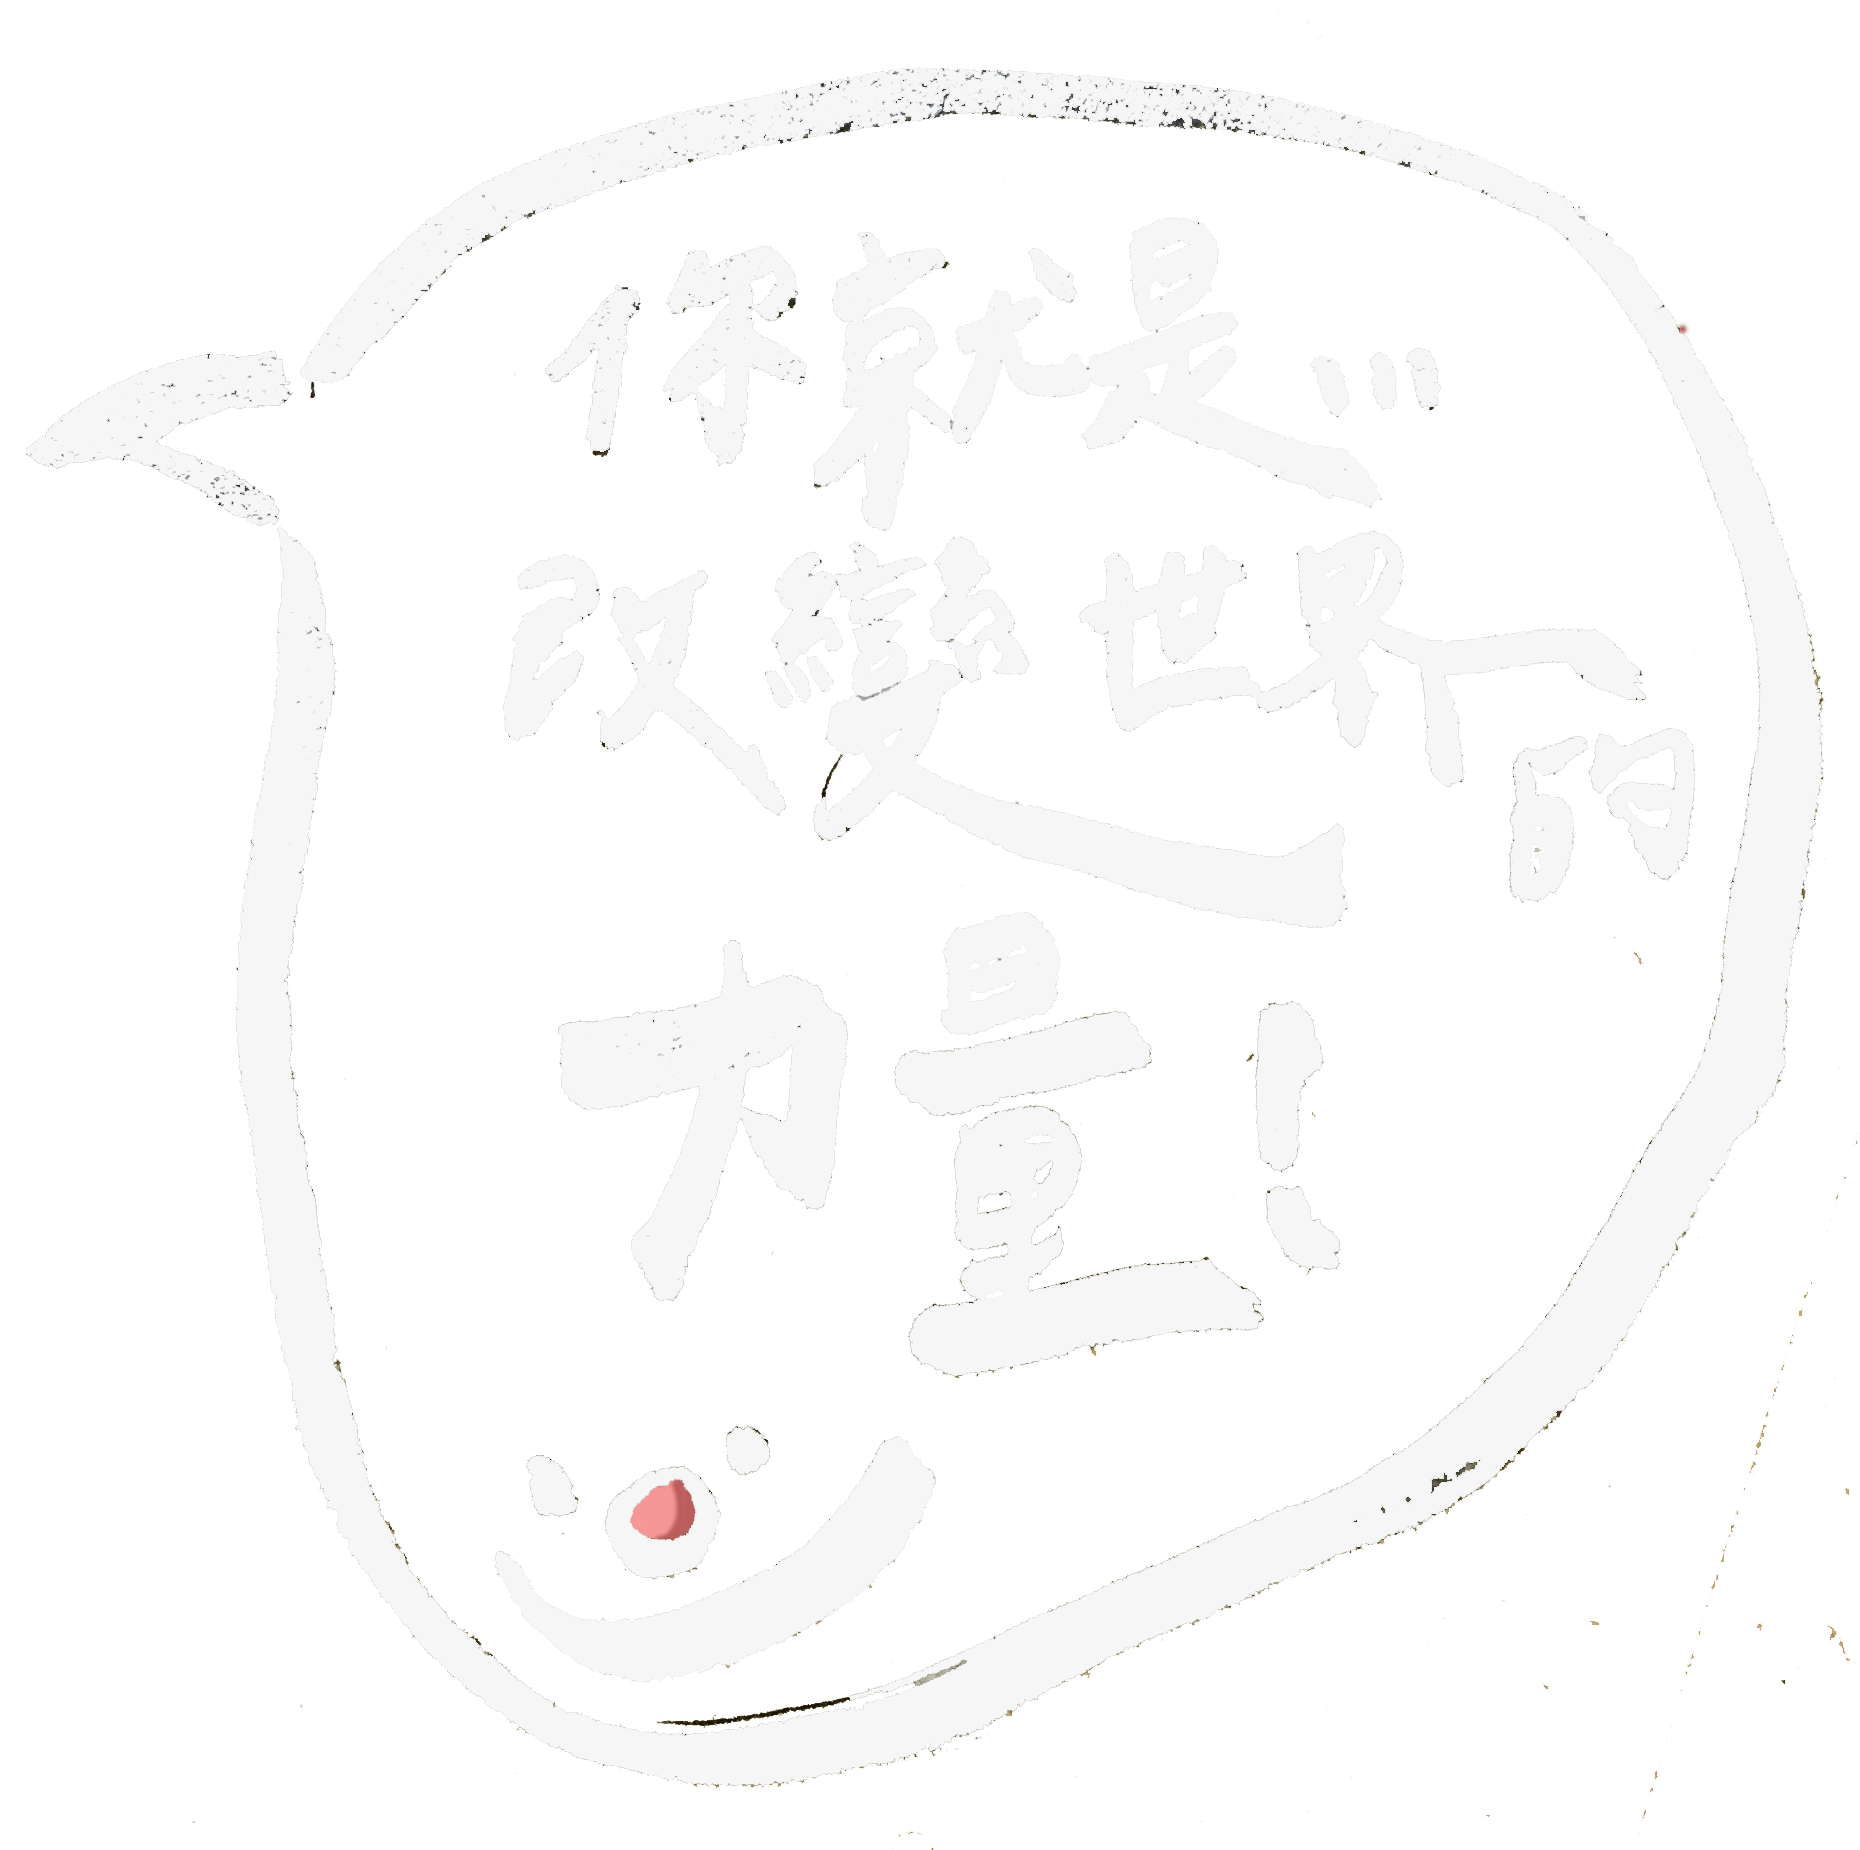 你就是...
改變世界的
力量!